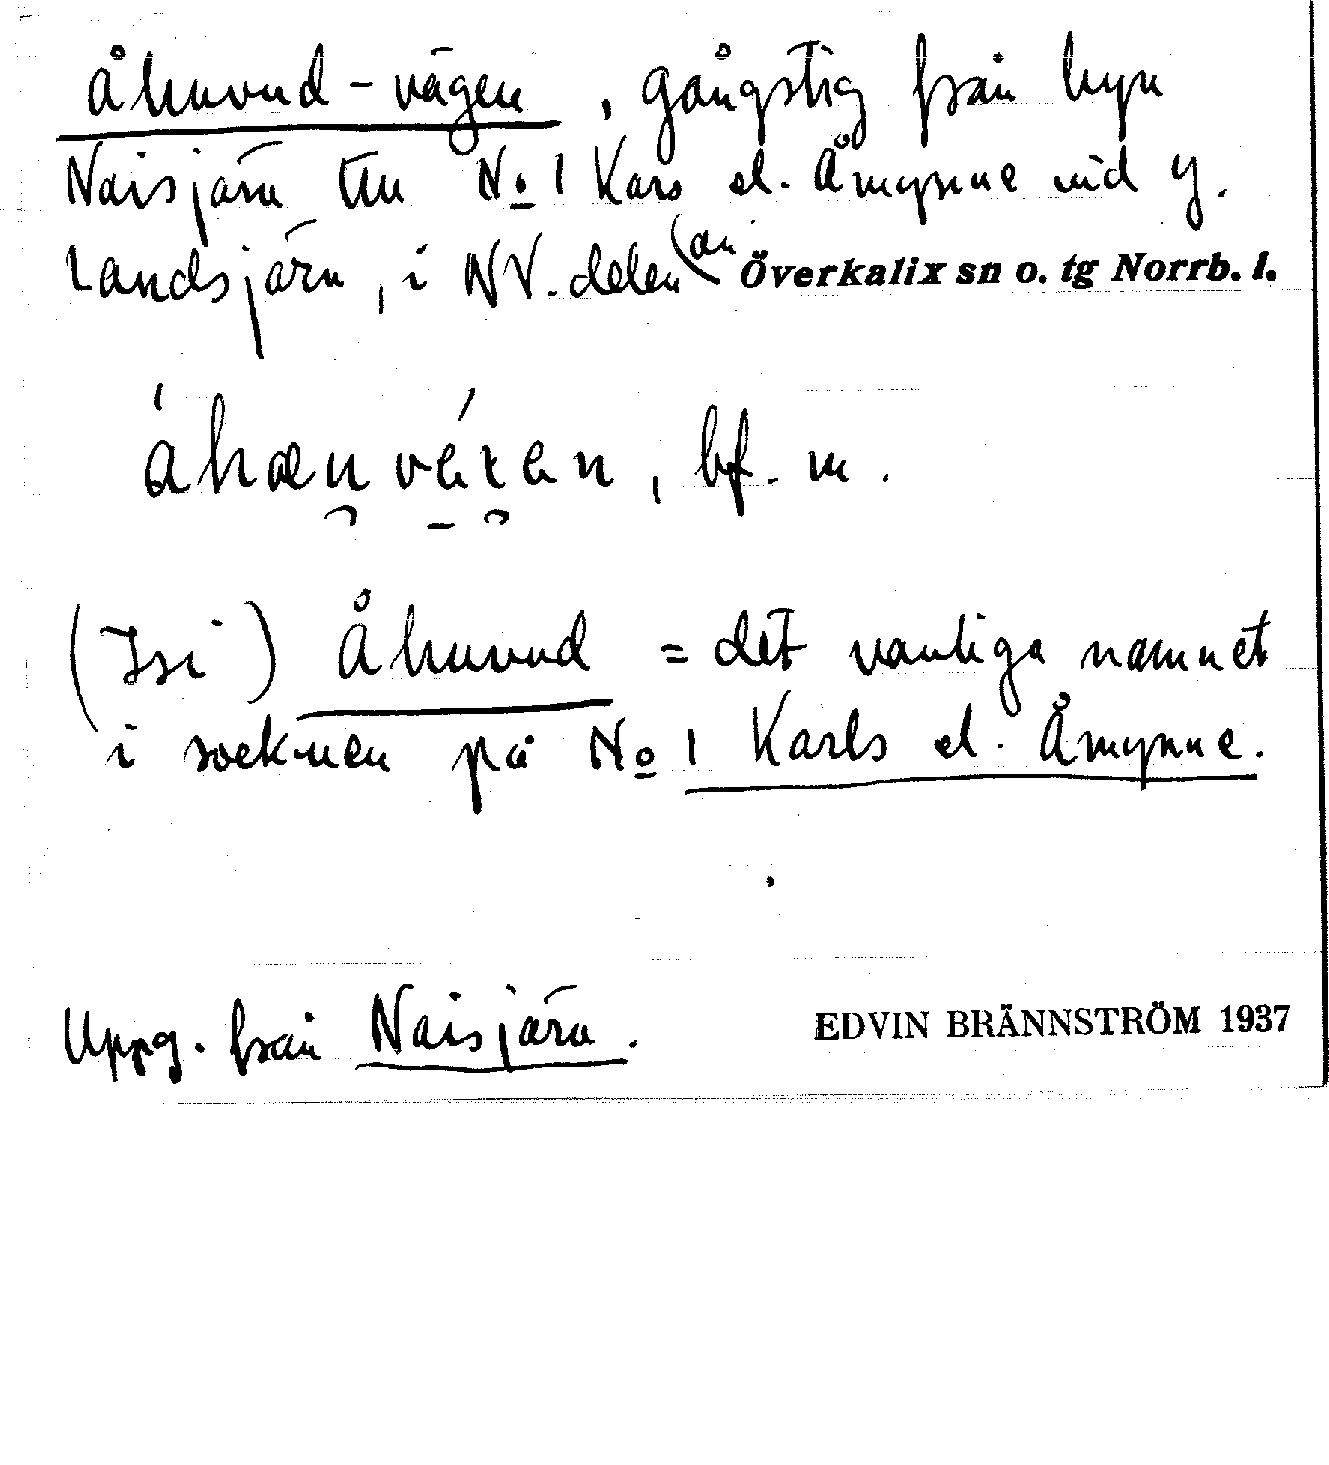 Åhuvud-vägen, gångstig från byn
Naisjärv till No 1 Kars el. Åmynne vid y.
Landsjärv, i NV. delen av Överkalix sn o. tg Norrb. l.
áhænvéɣen, bf. m.
(Isi) Åhuvud = det vanliga namnet
i socknen på No 1 Karls el. Åmynne.
Uppg. från Naisjärv.
EDVIN BRÄNNSTRÖM 1937